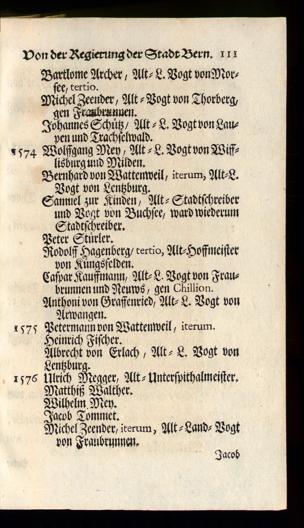 Von der Regierung der Stadt Bern. 111
Bartlome Archer, Alt-L. Vogt von Mor-
see, tertio.
Michel Zeender, Alt-Vogt von Thorberg,
gen Fraubrunnen.
Johannes Schütz, Alt-L. Vogt von Lau-
pen und Trachselwald.
1574 Wolffgang Mey, Alt-L. Vogt von Wiff-
lisburg und Milden.
Bernhard von Wattenweil, iterum, Alt-L.
Vogt von Lentzburg.
Samuel zur Kinden, Alt-Stadtschreiber
und Vogt von Buchsee, ward wiederum
Stadtschreiber.
Peter Stürler.
Rodolff Hagenberg/ tertio, Alt-Hoffmeister
von Küngsfelden.
Caspar Kauffmann, Alt-L. Vogt von Frau-
brunnen und Neuws, gen Chillion.
Anthoni von Graffenried, Alt-L. Vogt von
Arwangen.
1575 Petermann von Wattenweil, iterum.
Heinrich Fischer.
Albrecht von Erlach, Alt-L. Vogt von
Lentzburg.
1576 Ulrich Megger, Alt-Unterspithalmeister.
Matthiß Walther.
Wilhelm Mey.
Jacob Tommet.
Michel Zeender, iterum, Alt-Land-Vogt
von Fraubrunnen.
Jacob